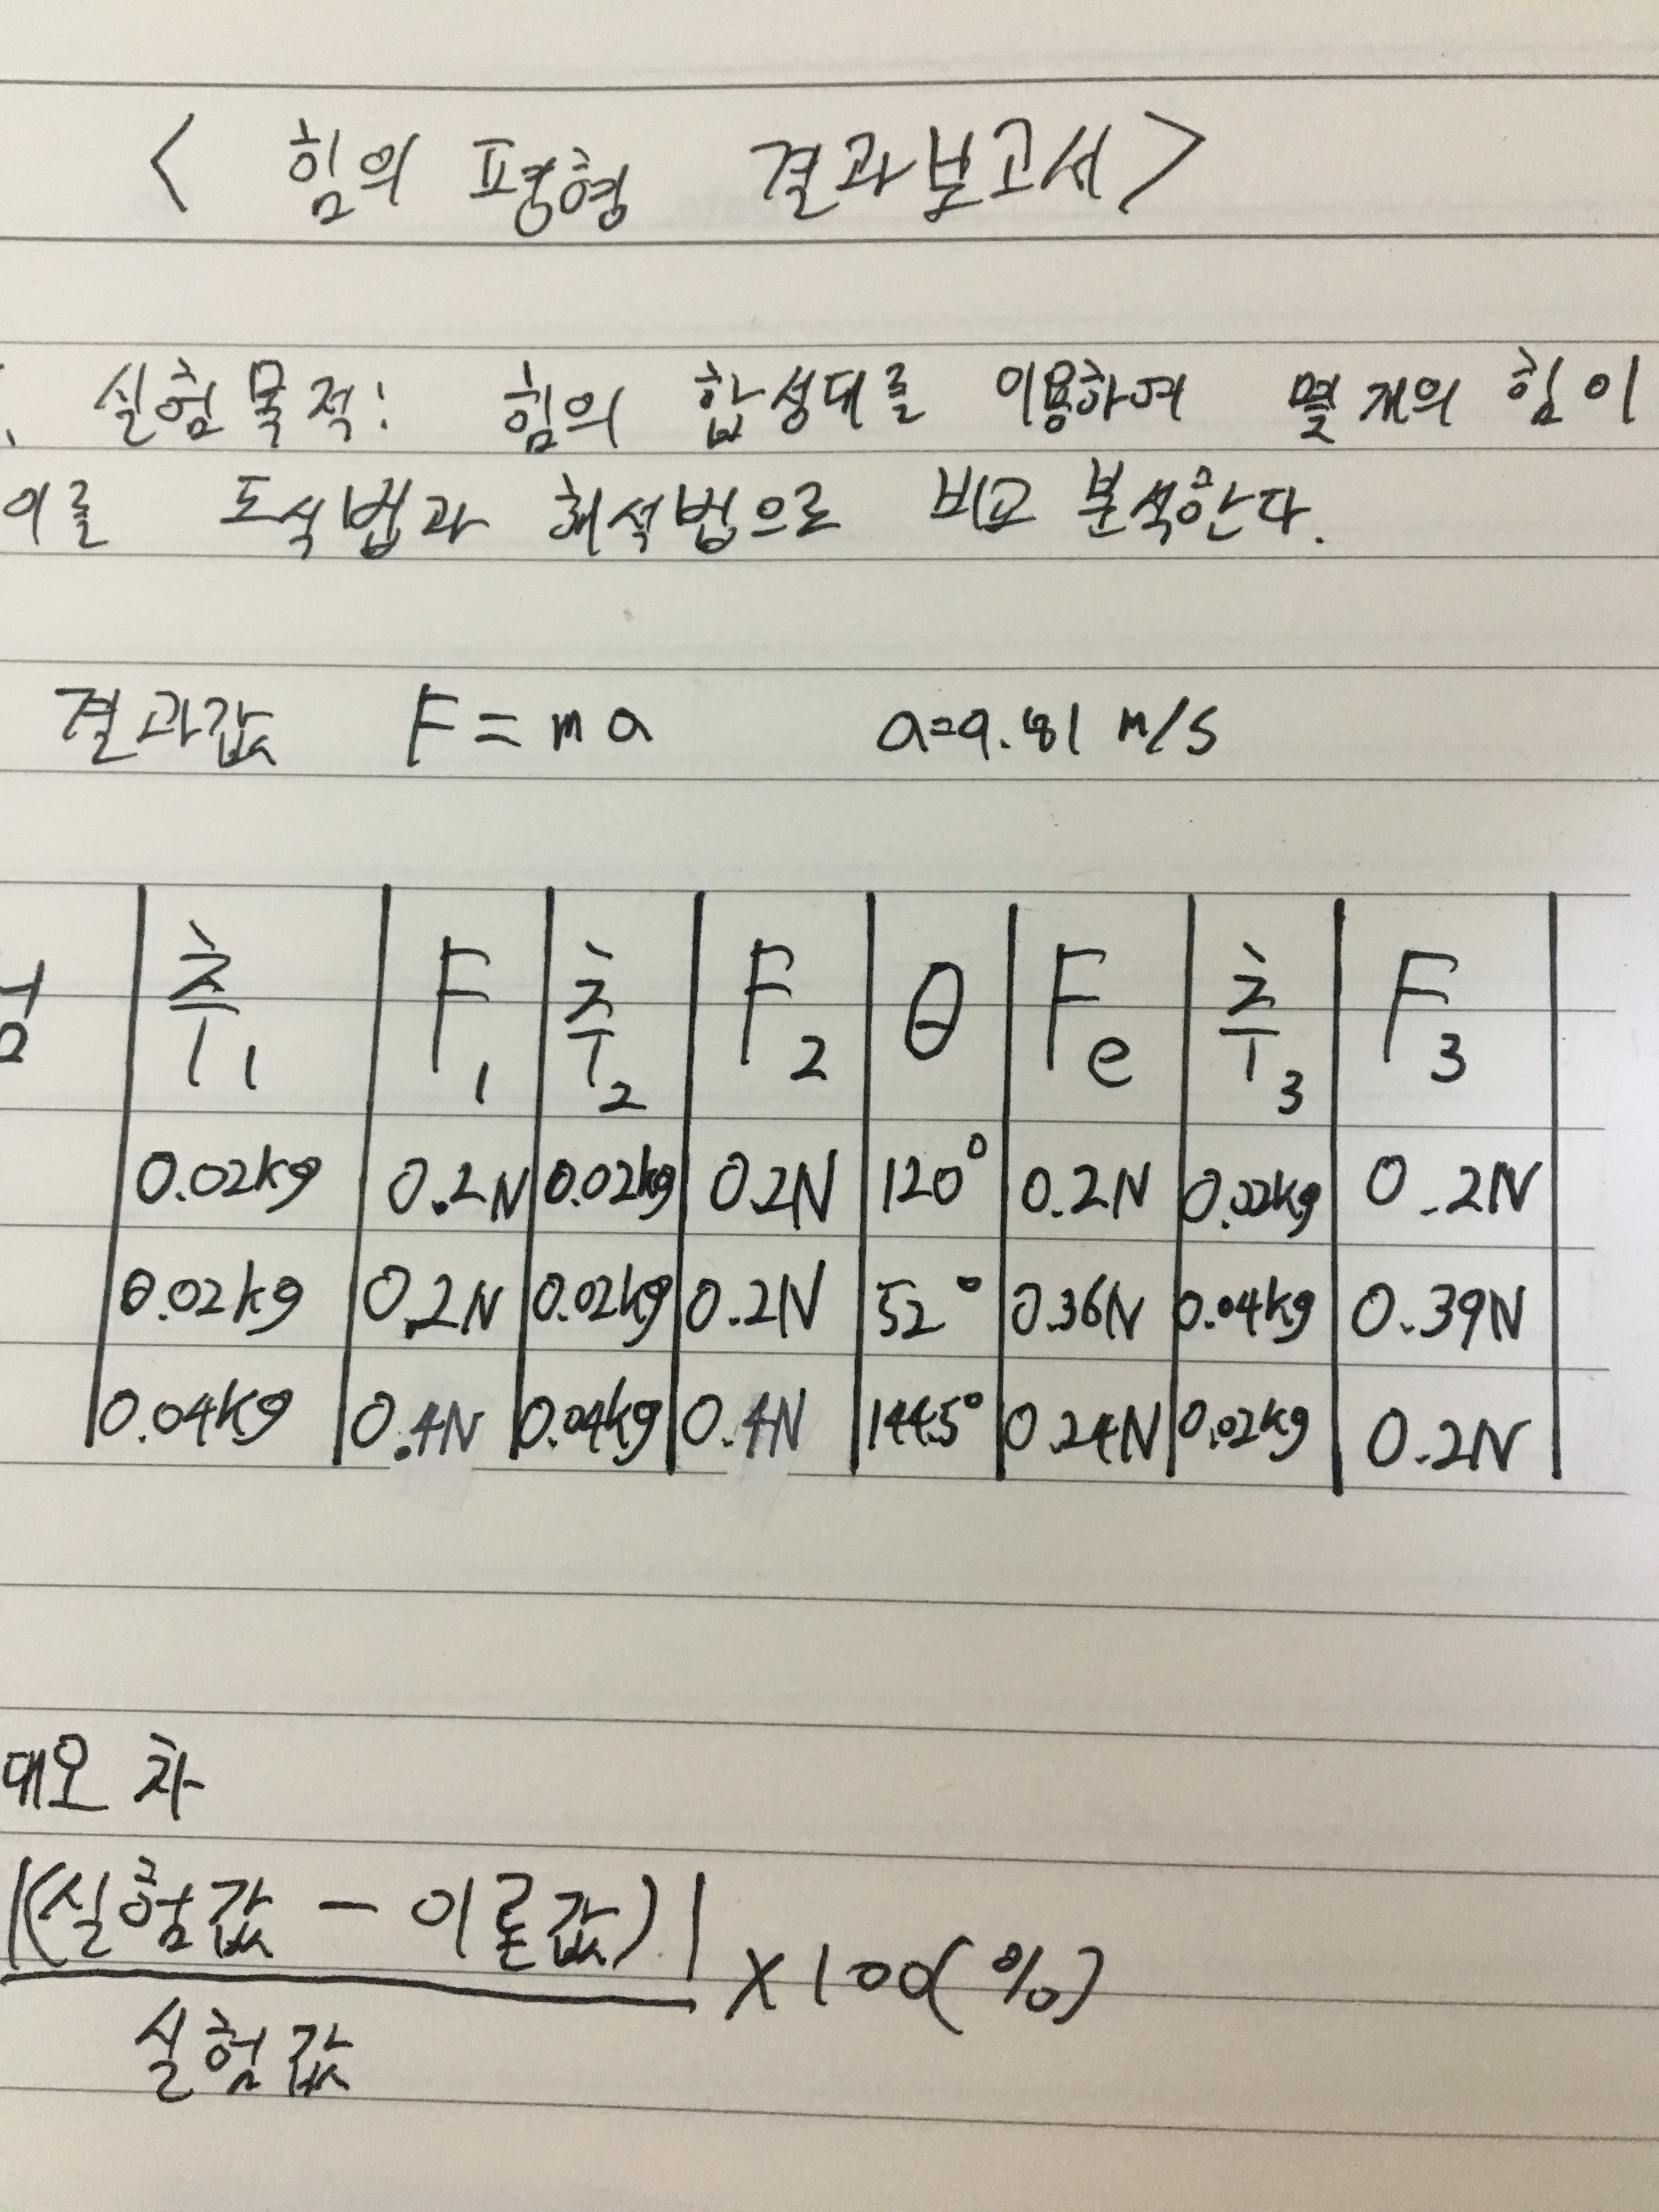 < 힘의 평형 결과보고서 >
. 실험목적: 힘의 합성대를 이용하여 몇 개의 힘이
이를 도식법과 해석법으로 비교 분석한다.
결과값 F = ma a=9.81 m/s
추1 F1 추2 F2 θ Fe 추3 F3
0.02kg 0.2N 0.02kg 0.2N 120° 0.2N 0.02kg 0.2N
0.02kg 0.2N 0.02kg 0.2N 52° 0.36N 0.04kg 0.39N
0.04kg 0.4N 0.04kg 0.4N 144.5° 0.24N 0.02kg 0.2N
대오차
|(실험값 - 이론값)|
× 100(%)
실험값